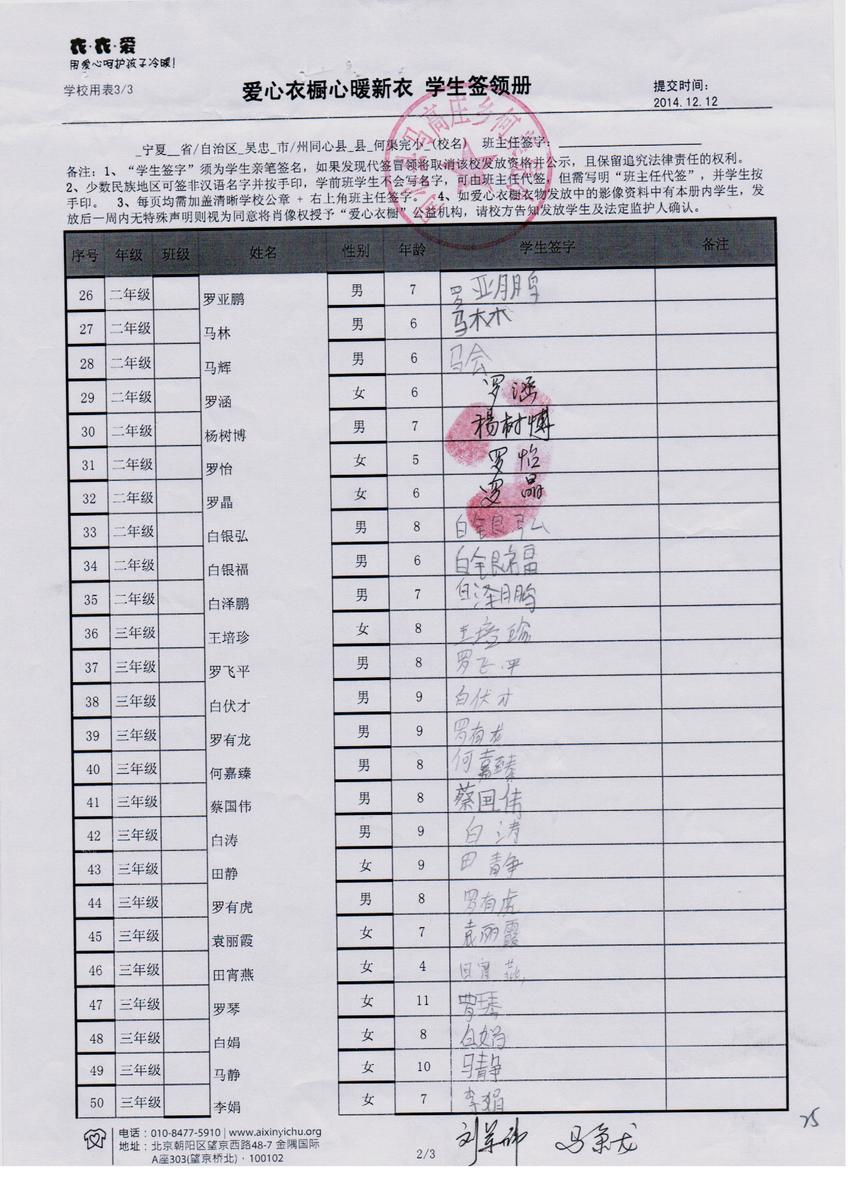 衣·衣·爱
用爱心呵护孩子冷暖!
学校用表3/3
爱心衣橱心暖新衣 学生签领册
提交时间:
2014.12.12
_宁夏__省/自治区_吴忠_市/州同心县_县_何渠完小_(校名) 班主任签字:
备注:1、“学生签字”须为学生亲笔签名,如果发现代签冒领将取消该校发放资格并公示,且保留追究法律责任的权利。
2、少数民族地区可签非汉语名字并按手印,学前班学生不会写名字,可由班主任代签,但需写明“班主任代签”,并学生按
手印。 3、每页均需加盖清晰学校公章 + 右上角班主任签字。 4、如爱心衣橱衣物发放中的影像资料中有本册内学生,发
放后一周内无特殊声明则视为同意将肖像权授予“爱心衣橱”公益机构,请校方告知发放学生及法定监护人确认。
序号 年级 班级 姓名 性别 年龄 学生签字 备注
26 二年级 罗亚鹏 男 7 罗亚鹏
27 二年级 马林 男 6 马林
28 二年级 马辉 男 6 马会
29 二年级 罗涵 女 6 罗涵
30 二年级 杨树博 男 7 杨树博
31 二年级 罗怡 女 5 罗怡
32 二年级 罗晶 女 6 罗晶
33 二年级 白银弘 男 8 白银弘
34 二年级 白银福 男 6 白银福
35 二年级 白泽鹏 男 7 白泽鹏
36 三年级 王培珍 女 8 王培珍
37 三年级 罗飞平 男 8 罗飞平
38 三年级 白伏才 男 9 白伏才
39 三年级 罗有龙 男 9 罗有龙
40 三年级 何嘉臻 男 8 何嘉臻
41 三年级 蔡国伟 男 8 蔡国伟
42 三年级 白涛 男 9 白涛
43 三年级 田静 女 9 田静
44 三年级 罗有虎 男 8 罗有虎
45 三年级 袁丽霞 女 7 袁丽霞
46 三年级 田宵燕 女 4 田宵燕
47 三年级 罗琴 女 11 罗琴
48 三年级 白娟 女 8 白娟
49 三年级 马静 女 10 马静
50 三年级 李娟 女 7 李娟
25
电话:010-8477-5910 | www.aixinyichu.org
地址:北京朝阳区望京西路48-7 金隅国际
A座303(望京桥北)·100102
2/3